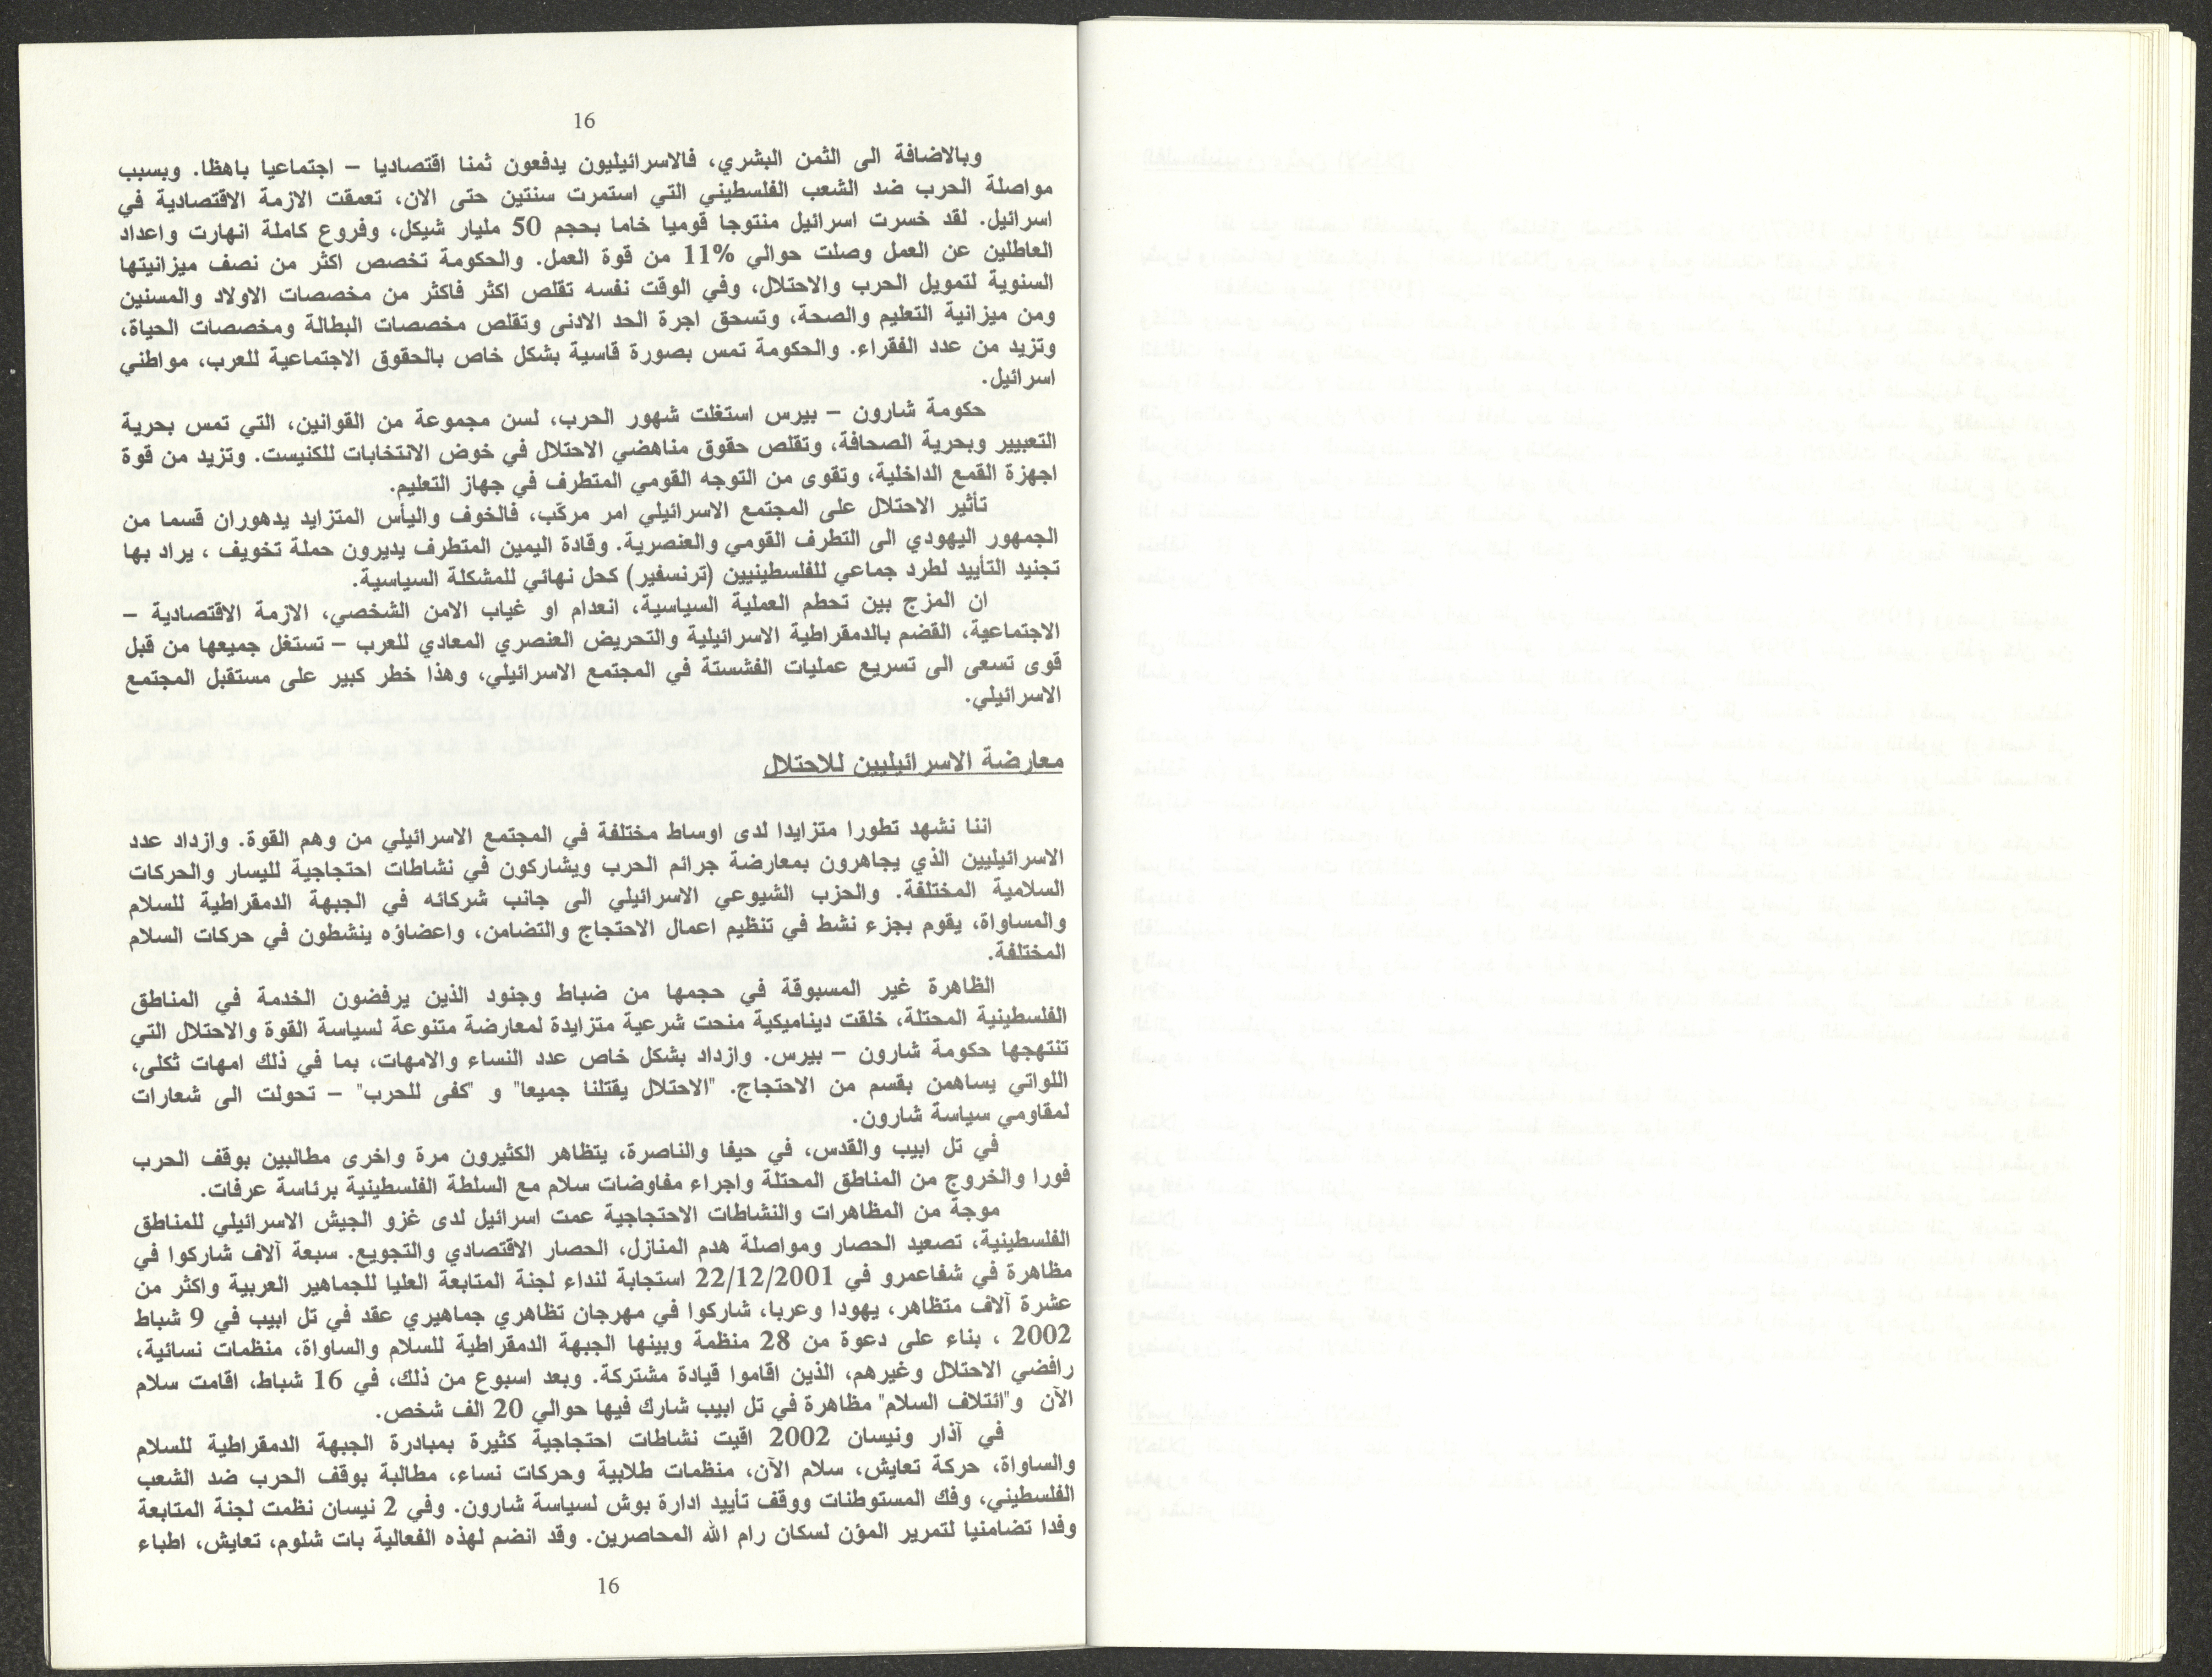 16
وبالاضافة الى الثمن البشري، فالاسرائيليون يدفعون ثمنا اقتصاديا – اجتماعيا باهظا. وبسبب
مواصلة الحرب ضد الشعب الفلسطيني التي استمرت سنتين حتى الان، تعمقت الازمة الاقتصادية في
اسرائيل. لقد خسرت اسرائيل منتوجا قوميا خاما بحجم 50 مليار شيكل، وفروع كاملة انهارت واعداد
العاطلين عن العمل وصلت حوالي 11% من قوة العمل. والحكومة تخصص اكثر من نصف ميزانيتها
السنوية لتمويل الحرب والاحتلال، وفي الوقت نفسه تقلص اكثر فاكثر من مخصصات الاولاد والمسنين
ومن ميزانية التعليم والصحة، وتسحق اجرة الحد الادنى وتقلص مخصصات البطالة ومخصصات الحياة،
وتزيد من عدد الفقراء. والحكومة تمس بصورة قاسية بشكل خاص بالحقوق الاجتماعية للعرب، مواطني
اسرائيل.
حكومة شارون – بيرس استغلت شهور الحرب، لسن مجموعة من القوانين، التي تمس بحرية
التعبيير وبحرية الصحافة، وتقلص حقوق مناهضي الاحتلال في خوض الانتخابات للكنيست. وتزيد من قوة
اجهزة القمع الداخلية، وتقوى من التوجه القومي المتطرف في جهاز التعليم.
تأثير الاحتلال على المجتمع الاسرائيلي امر مركّب، فالخوف واليأس المتزايد يدهوران قسما من
الجمهور اليهودي الى التطرف القومي والعنصرية. وقادة اليمين المتطرف يديرون حملة تخويف ، يراد بها
تجنيد التأييد لطرد جماعي للفلسطينيين (ترنسفير) كحل نهائي للمشكلة السياسية.
ان المزج بين تحطم العملية السياسية، انعدام او غياب الامن الشخصي، الازمة الاقتصادية –
الاجتماعية، القضم بالدمقراطية الاسرائيلية والتحريض العنصري المعادي للعرب – تستغل جميعها من قبل
قوى تسعى الى تسريع عمليات الفشستة في المجتمع الاسرائيلي، وهذا خطر كبير على مستقبل المجتمع
الاسرائيلي.
معارضة الاسرائيليين للاحتلال
اننا نشهد تطورا متزايدا لدى اوساط مختلفة في المجتمع الاسرائيلي من وهم القوة. وازداد عدد
الاسرائيليين الذي يجاهرون بمعارضة جرائم الحرب ويشاركون في نشاطات احتجاجية لليسار والحركات
السلامية المختلفة. والحزب الشيوعي الاسرائيلي الى جانب شركائه في الجبهة الدمقراطية للسلام
والمساواة، يقوم بجزء نشط في تنظيم اعمال الاحتجاج والتضامن، واعضاؤه ينشطون في حركات السلام
المختلفة.
الظاهرة غير المسبوقة في حجمها من ضباط وجنود الذين يرفضون الخدمة في المناطق
الفلسطينية المحتلة، خلقت ديناميكية منحت شرعية متزايدة لمعارضة متنوعة لسياسة القوة والاحتلال التي
تنتهجها حكومة شارون – بيرس. وازداد بشكل خاص عدد النساء والامهات، بما في ذلك امهات ثكلى،
اللواتي يساهمن بقسم من الاحتجاج. "الاحتلال يقتلنا جميعا" و "كفى للحرب" – تحولت الى شعارات
لمقاومي سياسة شارون.
في تل ابيب والقدس، في حيفا والناصرة، يتظاهر الكثيرون مرة واخرى مطالبين بوقف الحرب
فورا والخروج من المناطق المحتلة واجراء مفاوضات سلام مع السلطة الفلسطينية برئاسة عرفات.
موجة من المظاهرات والنشاطات الاحتجاجية عمت اسرائيل لدى غزو الجيش الاسرائيلي للمناطق
الفلسطينية، تصعيد الحصار ومواصلة هدم المنازل، الحصار الاقتصادي والتجويع. سبعة آلاف شاركوا في
مظاهرة في شفاعمرو في 22/12/2001 استجابة لنداء لجنة المتابعة العليا للجماهير العربية واكثر من
عشرة آلاف متظاهر، يهودا وعربا، شاركوا في مهرجان تظاهري جماهيري عقد في تل ابيب في 9 شباط
2002 ، بناء على دعوة من 28 منظمة وبينها الجبهة الدمقراطية للسلام والساواة، منظمات نسائية،
رافضي الاحتلال وغيرهم، الذين اقاموا قيادة مشتركة. وبعد اسبوع من ذلك، في 16 شباط، اقامت سلام
الآن و"ائتلاف السلام" مظاهرة في تل ابيب شارك فيها حوالي 20 الف شخص.
في آذار ونيسان 2002 اقيت نشاطات احتجاجية كثيرة بمبادرة الجبهة الدمقراطية للسلام
والساواة، حركة تعايش، سلام الآن، منظمات طلابية وحركات نساء، مطالبة بوقف الحرب ضد الشعب
الفلسطيني، وفك المستوطنات ووقف تأييد ادارة بوش لسياسة شارون. وفي 2 نيسان نظمت لجنة المتابعة
وفدا تضامنيا لتمرير المؤن لسكان رام الله المحاصرين. وقد انضم لهذه الفعالية بات شلوم، تعايش، اطباء
16